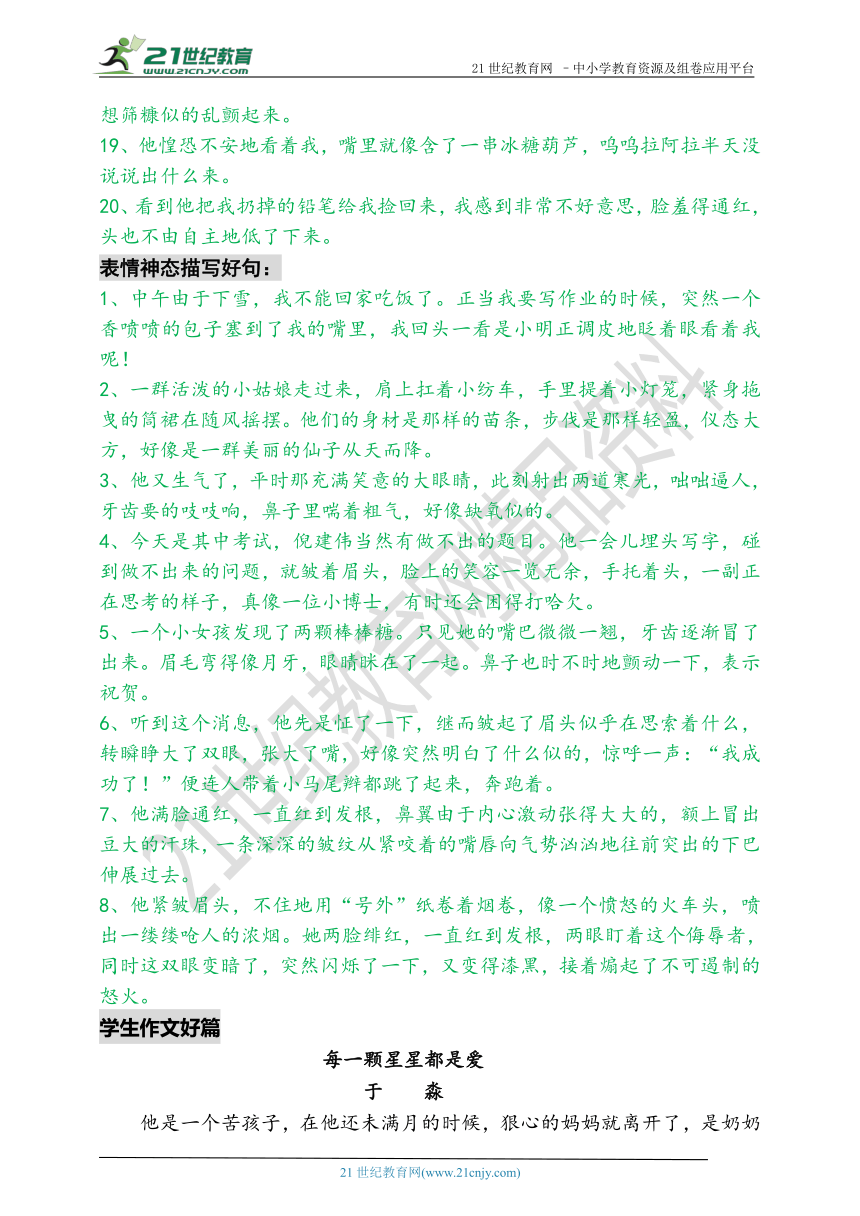 21世纪教育
WWW.21CNJY.COM
21世纪教育网 －中小学教育资源及组卷应用平台
想筛糠似的乱颤起来。
19、他惶恐不安地看着我，嘴里就像含了一串冰糖葫芦，呜呜拉阿拉半天没
说说出什么来。
20、看到他把我扔掉的铅笔给我捡回来，我感到非常不好意思，脸羞得通红，
头也不由自主地低了下来。
表情神态描写好句：
1、中午由于下雪，我不能回家吃饭了。正当我要写作业的时候，突然一个
香喷喷的包子塞到了我的嘴里，我回头一看是小明正调皮地眨着眼看着我
呢！
2、一群活泼的小姑娘走过来，肩上扛着小纺车，手里提着小灯笼，紧身拖
曳的筒裙在随风摇摆。他们的身材是那样的苗条，步伐是那样轻盈，仪态大
方，好像是一群美丽的仙子从天而降。
3、他又生气了，平时那充满笑意的大眼睛，此刻射出两道寒光，咄咄逼人，
牙齿要的吱吱响，鼻子里喘着粗气，好像缺氧似的。
4、今天是其中考试，倪建伟当然有做不出的题目。他一会儿埋头写字，碰
到做不出来的问题，就皱着眉头，脸上的笑容一览无余，手托着头，一副正
在思考的样子，真像一位小博士，有时还会困得打哈欠。
5、一个小女孩发现了两颗棒棒糖。只见她的嘴巴微微一翘，牙齿逐渐冒了
出来。眉毛弯得像月牙，眼睛眯在了一起。鼻子也时不时地颤动一下，表示
祝贺。
6、听到这个消息，他先是怔了一下，继而皱起了眉头似乎在思索着什么，
转瞬睁大了双眼，张大了嘴，好像突然明白了什么似的，惊呼一声：“我成
功了！”便连人带着小马尾辫都跳了起来，奔跑着。
7、他满脸通红，一直红到发根，鼻翼由于内心激动张得大大的，额上冒出
豆大的汗珠，一条深深的皱纹从紧咬着的嘴唇向气势汹汹地往前突出的下巴
伸展过去。
8、他紧皱眉头，不住地用“号外”纸卷着烟卷，像一个愤怒的火车头，喷
出一缕缕呛人的浓烟。她两脸绯红，一直红到发根，两眼盯着这个侮辱者，
同时这双眼变暗了，突然闪烁了一下，又变得漆黑，接着煽起了不可遏制的
怒火。
学生作文好篇
每一颗星星都是爱
于 淼
他是一个苦孩子，在他还未满月的时候，狠心的妈妈就离开了，是奶奶
21世纪教育网(www.21cnjy.com)
21世纪教育网精品资料